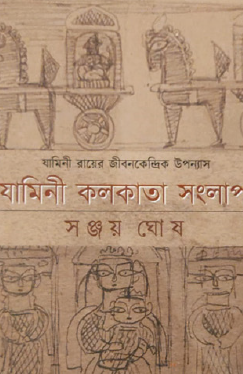 যামিনী রায়ের জীবনকেন্দ্রিক উপন্যাস
যামিনী কলকাতা সংলাপ
সঞ্জয় ঘোষ